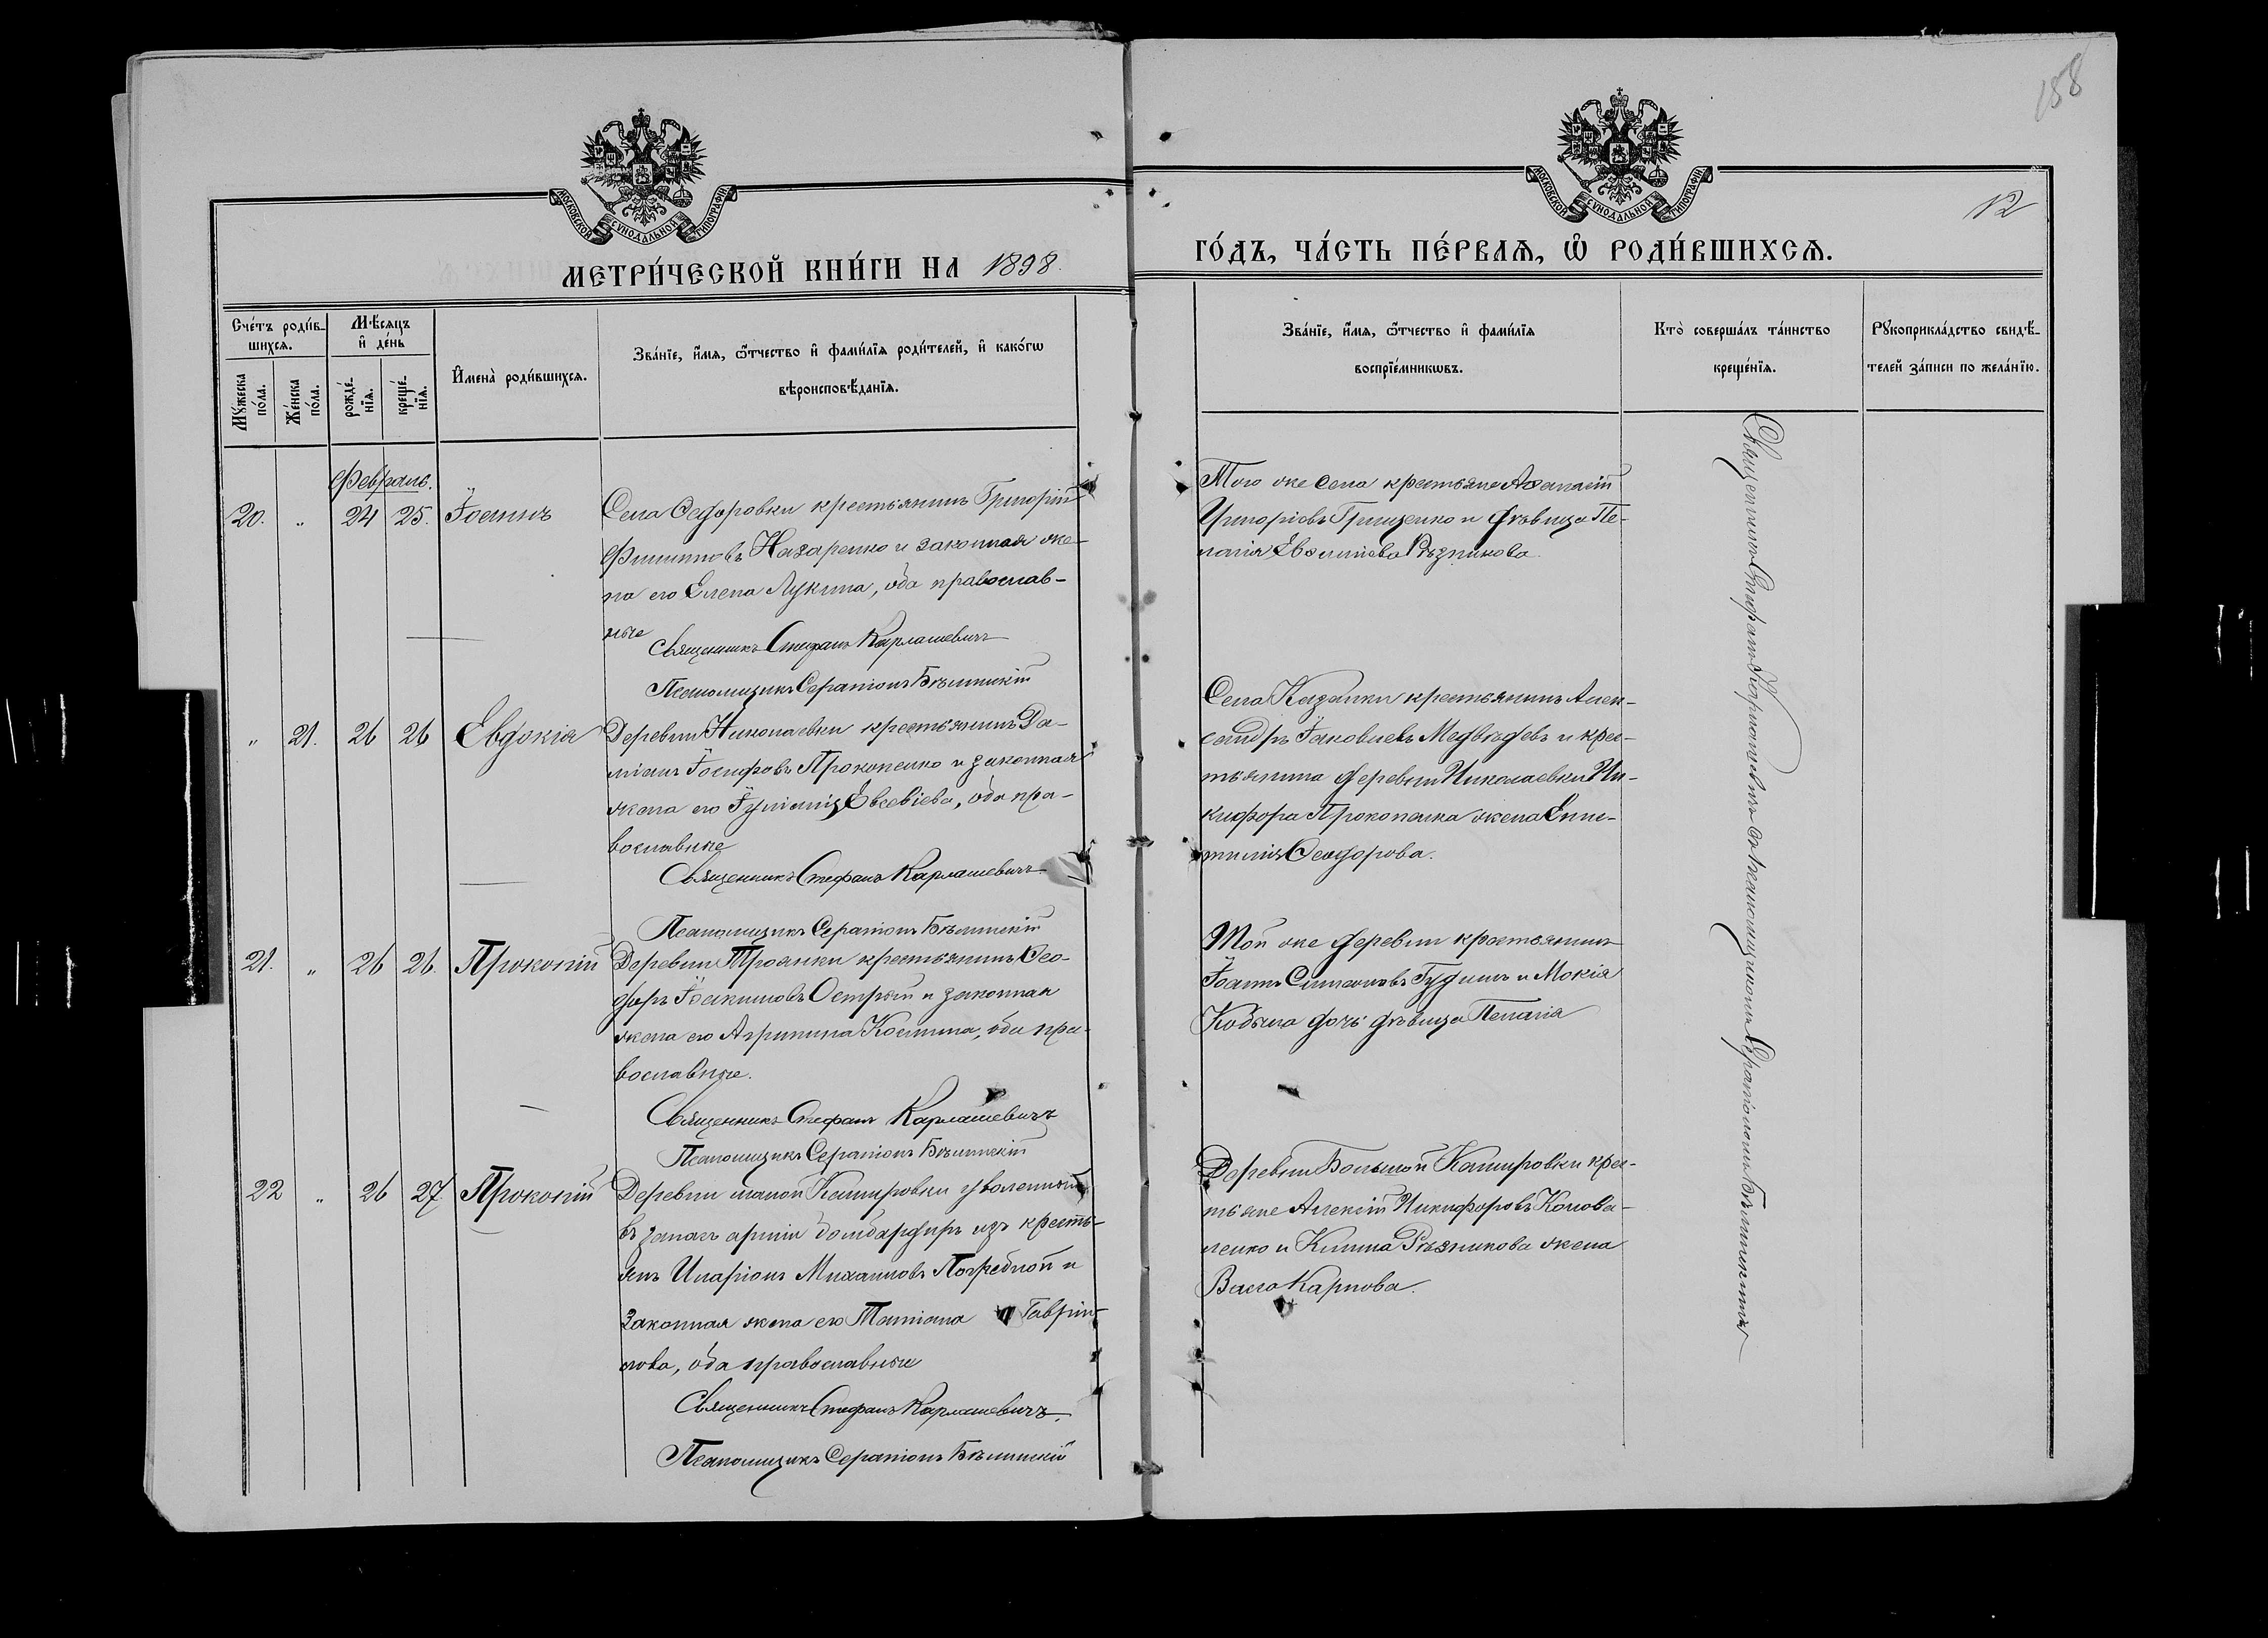 158
МОСКОВСКОЙ СѴНОДАЛЬНОЙ ТИПОГРАФІИ
МОСКОВСКОЙ СѴНОДАЛЬНОЙ ТИПОГРАФІИ
12
МЕТРИ́ЧЕСКОЙ КНИ́ГИ НА 1898.
ГО́ДЪ, ЧА́СТЬ ПЕ́РВАѦ, Ѽ РОДИ́ВШИХСѦ.
Сче́тъ роди́в-
шихсѧ.
Мѣ́сѧцъ
и҆ де́нь
Мꙋ́жеска
по́ла.
Же́нска
по́ла.
рожде́-
нїѧ.
креще́-
нїѧ.
И҆мена̀ роди́вшихсѧ.
Зва́нїе, и҆́мѧ, ѻ҆́тчество и҆ фами́лїѧ роди́телей, и҆ како́гѡ
вѣроисповѣ́данїѧ.
Зва́нїе, и҆́мѧ, ѻ҆́тчество и҆ фами́лїѧ
воспрїе́мникѡвъ.
Кто̀ соверша́лъ та́инство
креще́нїѧ.
Рꙋкоприкла́дство свидѣ́-
телей за́писи по жела́нїю.
Февраль.
20. „ 24 25. Іоаннъ
Села Ѳедоровки крестьянинъ Григорій
Филипповъ Назаренко и законная же-
на его Елена Лукина, оба православ-
ные
Священникъ Стефанъ Карлашевичъ
Псаломщикъ Серапіонъ Бѣлинскій
Того же села крестьяне Аѳанасій
Григоріевъ Грищенко и дѣвица Пе-
лагія Резникова
„ 21. 26 26 Евдокія
Деревни Николаевки крестьянинъ Да-
міанъ Іосифовъ Прокопенко и законная
жена его Іуліанія Евсевіева, оба пра-
вославные
Священникъ Стефанъ Карлашевичъ
Псаломщикъ Серапіонъ Бѣлинскій
Села Казанки крестьянинъ Алек-
сандръ Іаковлевъ Медвѣдевъ и крес-
тьянина деревни Николаевки Ни-
кифора Прокопенка жена Епис-
тимія Ѳеодорова.
21. „ 26 26. Прокопій
Деревни Троянки крестьянинъ Ѳео-
доръ Іоакимовъ Острый и законная
жена его Агрипина Космина, оба пра-
вославные.
Священникъ Стефанъ Карлашевичъ
Псаломщикъ Серапіонъ Бѣлинскій
Той же деревни крестьянинъ
Іоаннъ Симеоновъ Гудимъ и Мокія
Кобыла дочь дѣвица Пелагія
22 „ 26 27 Прокопій
Деревни малой Кашировки уволенный
въ запасъ арміи бомбардиръ изъ кресть-
янъ Иларіонъ Михаиловъ Погребной и
законная жена его Татіана Гаврии-
лова, оба православные
Священникъ Стефанъ Карлашевичъ.
Псаломщикъ Серапіонъ Бѣлинскій
Деревни Большой Кашировки крес-
тьяне Алексій Никифоровъ Колова-
ленко и Климa Рѣзникова жена
Васса Карпова.
Священникъ Стефанъ Карлашевичъ съ псаломщикомъ Серапіономъ Бѣлинскимъ